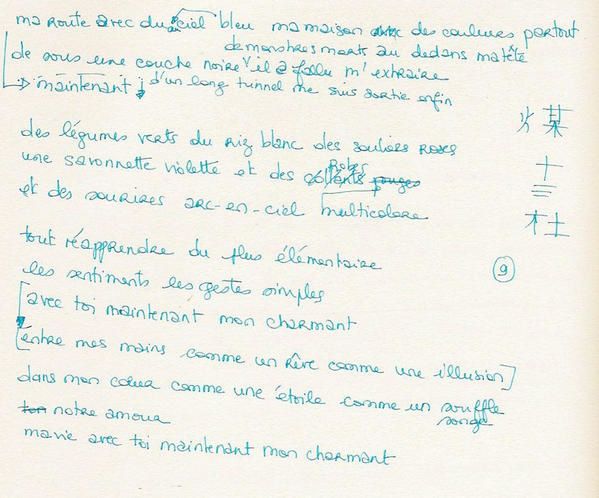 ma route avec du ciel bleu ma maison avec des couleurs partout
au
de monstres morts au dedans ma tête
de sous une couche noire il a fallu m'extraire
→ maintenant d'un long tunnel me suis sortie enfin
des légumes verts du riz blanc des souliers roses
une savonnette violette et des collants rouges
Robes
et des sourires arc-en-ciel multicolore
tout réapprendre du plus élémentaire
les sentiments les gestes simples
[avec toi maintenant mon charmant
[entre mes mains comme un rêve comme une illusion]
dans mon cœur comme une étoile comme un souffle
songe
ton notre amour
ma vie avec toi maintenant mon charmant
火某
十
三
杜
9